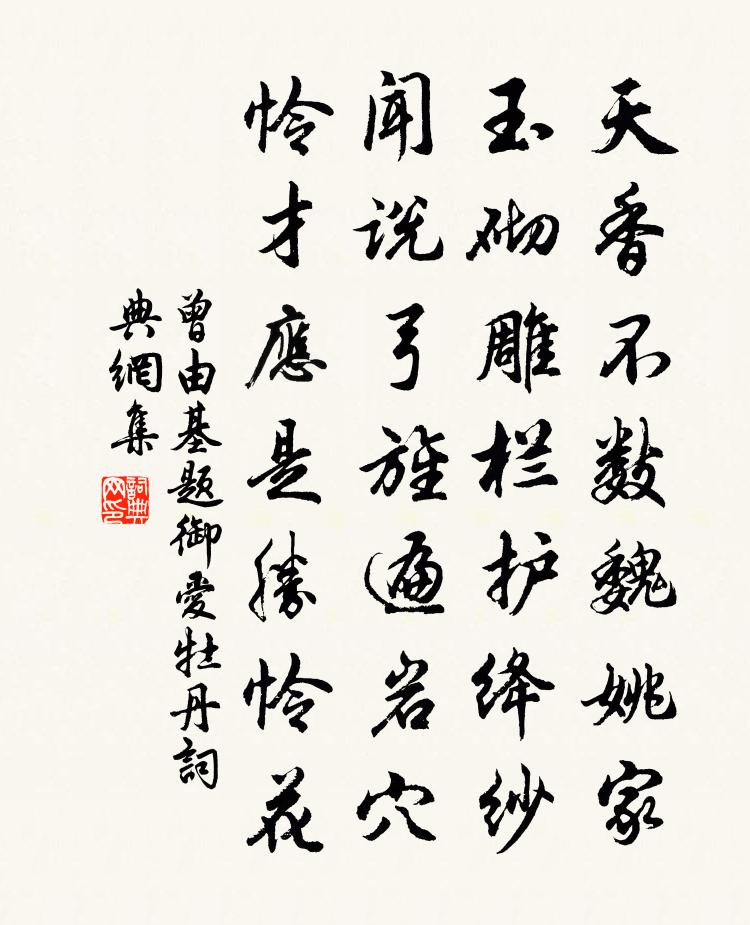 天香不数魏姚家
玉砌雕栏护绛纱
闻说弓旌遍岩穴
怜才應是勝怜花
曾由基题御爱牡丹詞
典網集
詞典网印